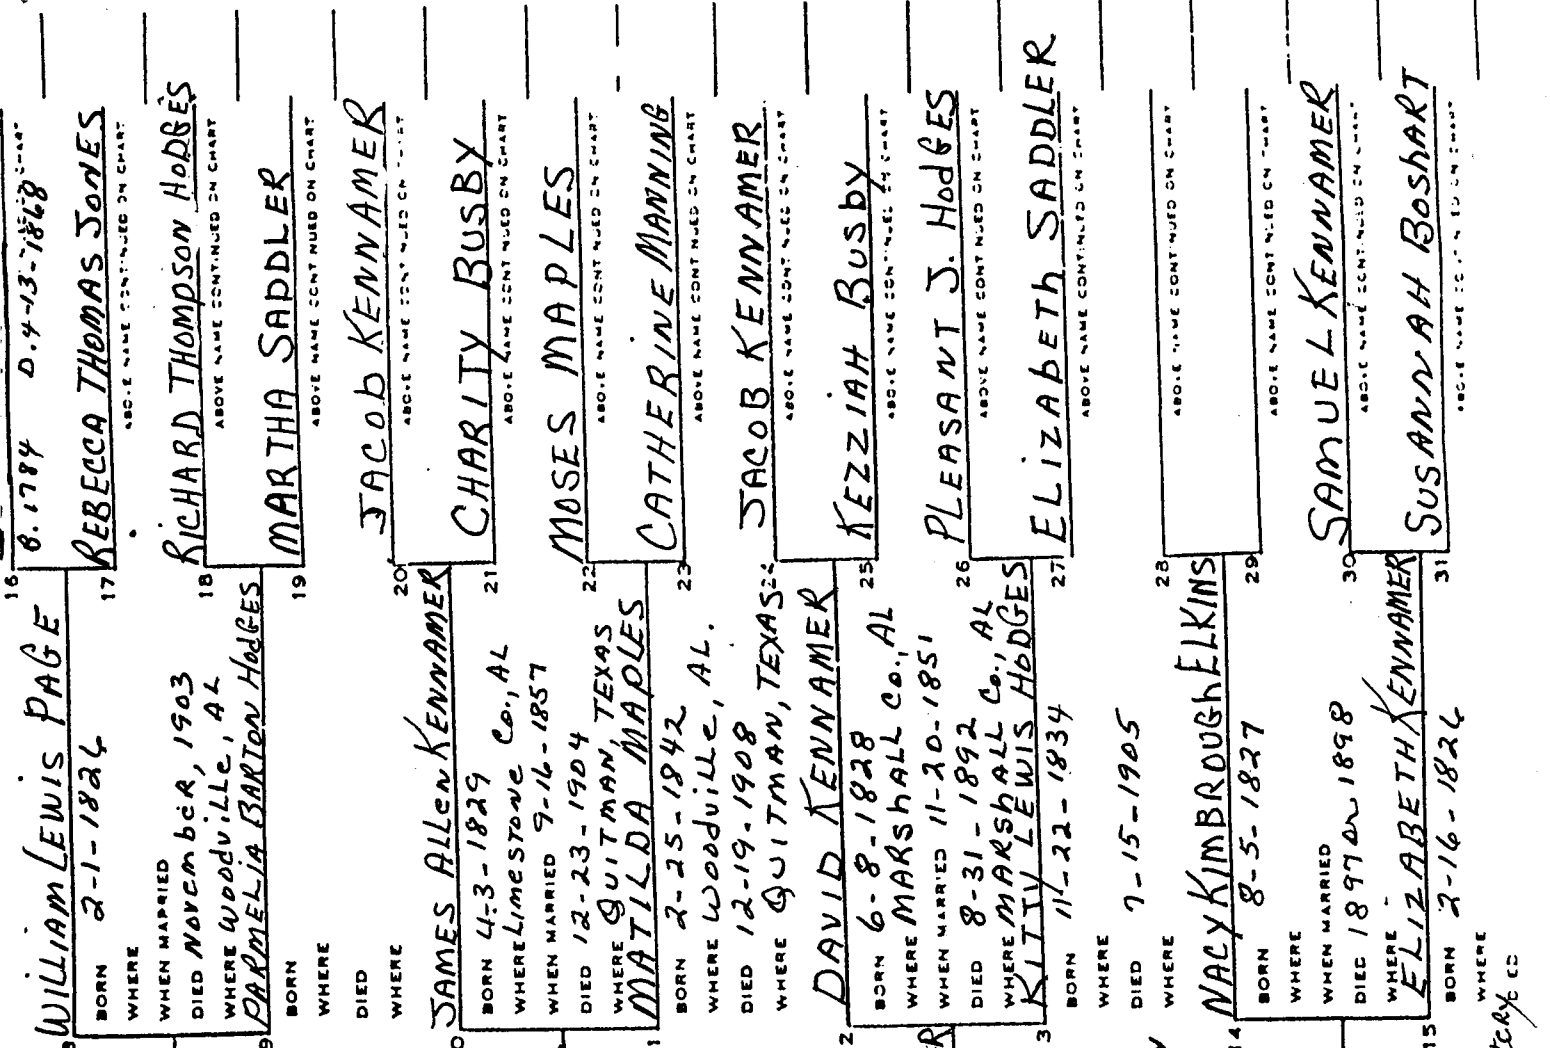 WILLIAM LEWIS PAGE
BORN 2-1-1826
WHERE
WHEN MARRIED
DIED NOVEMBER, 1903
WHERE WOODVILLE, AL
PARMELIA BARTON HODGES
BORN
WHERE
DIED
WHERE
JAMES ALLEN KENNAMER
BORN 4-3-1829
WHERE LIMESTONE CO., AL
WHEN MARRIED 9-16-1857
DIED 12-23-1904
WHERE QUITMAN, TEXAS
MATILDA MAPLES
BORN 2-25-1842
WHERE WOODVILLE, AL.
DIED 12-19-1908
WHERE QUITMAN, TEXAS
2 DAVID KENNAMER
BORN 6-8-1828
WHERE MARSHALL CO., AL
WHEN MARRIED 11-20-1851
DIED 8-31-1892
WHERE MARSHALL CO., AL
3 KITTY LEWIS HODGES
BORN 11-22-1834
WHERE
DIED 7-15-1905
WHERE
14 NACY KIMBROUGH ELKINS
BORN 8-5-1827
WHERE
WHEN MARRIED
DIED 1897 OR 1898
WHERE
15 ELIZABETH KENNAMER
BORN 2-16-1826
WHERE
16
B. 1784 D. 4-13-1868
17 REBECCA THOMAS JONES
ABOVE NAME CONTINUED ON CHART
18 RICHARD THOMPSON HODGES
ABOVE NAME CONTINUED ON CHART
19 MARTHA SADDLER
ABOVE NAME CONTINUED ON CHART
20 JACOB KENNAMER
ABOVE NAME CONTINUED ON CHART
21 CHARITY BUSBY
ABOVE NAME CONTINUED ON CHART
22 MOSES MAPLES
ABOVE NAME CONTINUED ON CHART
23 CATHERINE MANNING
ABOVE NAME CONTINUED ON CHART
JACOB KENNAMER
ABOVE NAME CONTINUED ON CHART
25 KEZZIAH BUSBY
ABOVE NAME CONTINUED ON CHART
26 PLEASANT J. HODGES
ABOVE NAME CONTINUED ON CHART
27 ELIZABETH SADDLER
ABOVE NAME CONTINUED ON CHART
28
ABOVE NAME CONTINUED ON CHART
29
ABOVE NAME CONTINUED ON CHART
30 SAMUEL KENNAMER
ABOVE NAME CONTINUED ON CHART
31 SUSANNAH BOSHART
ABOVE NAME CONTINUED ON CHART